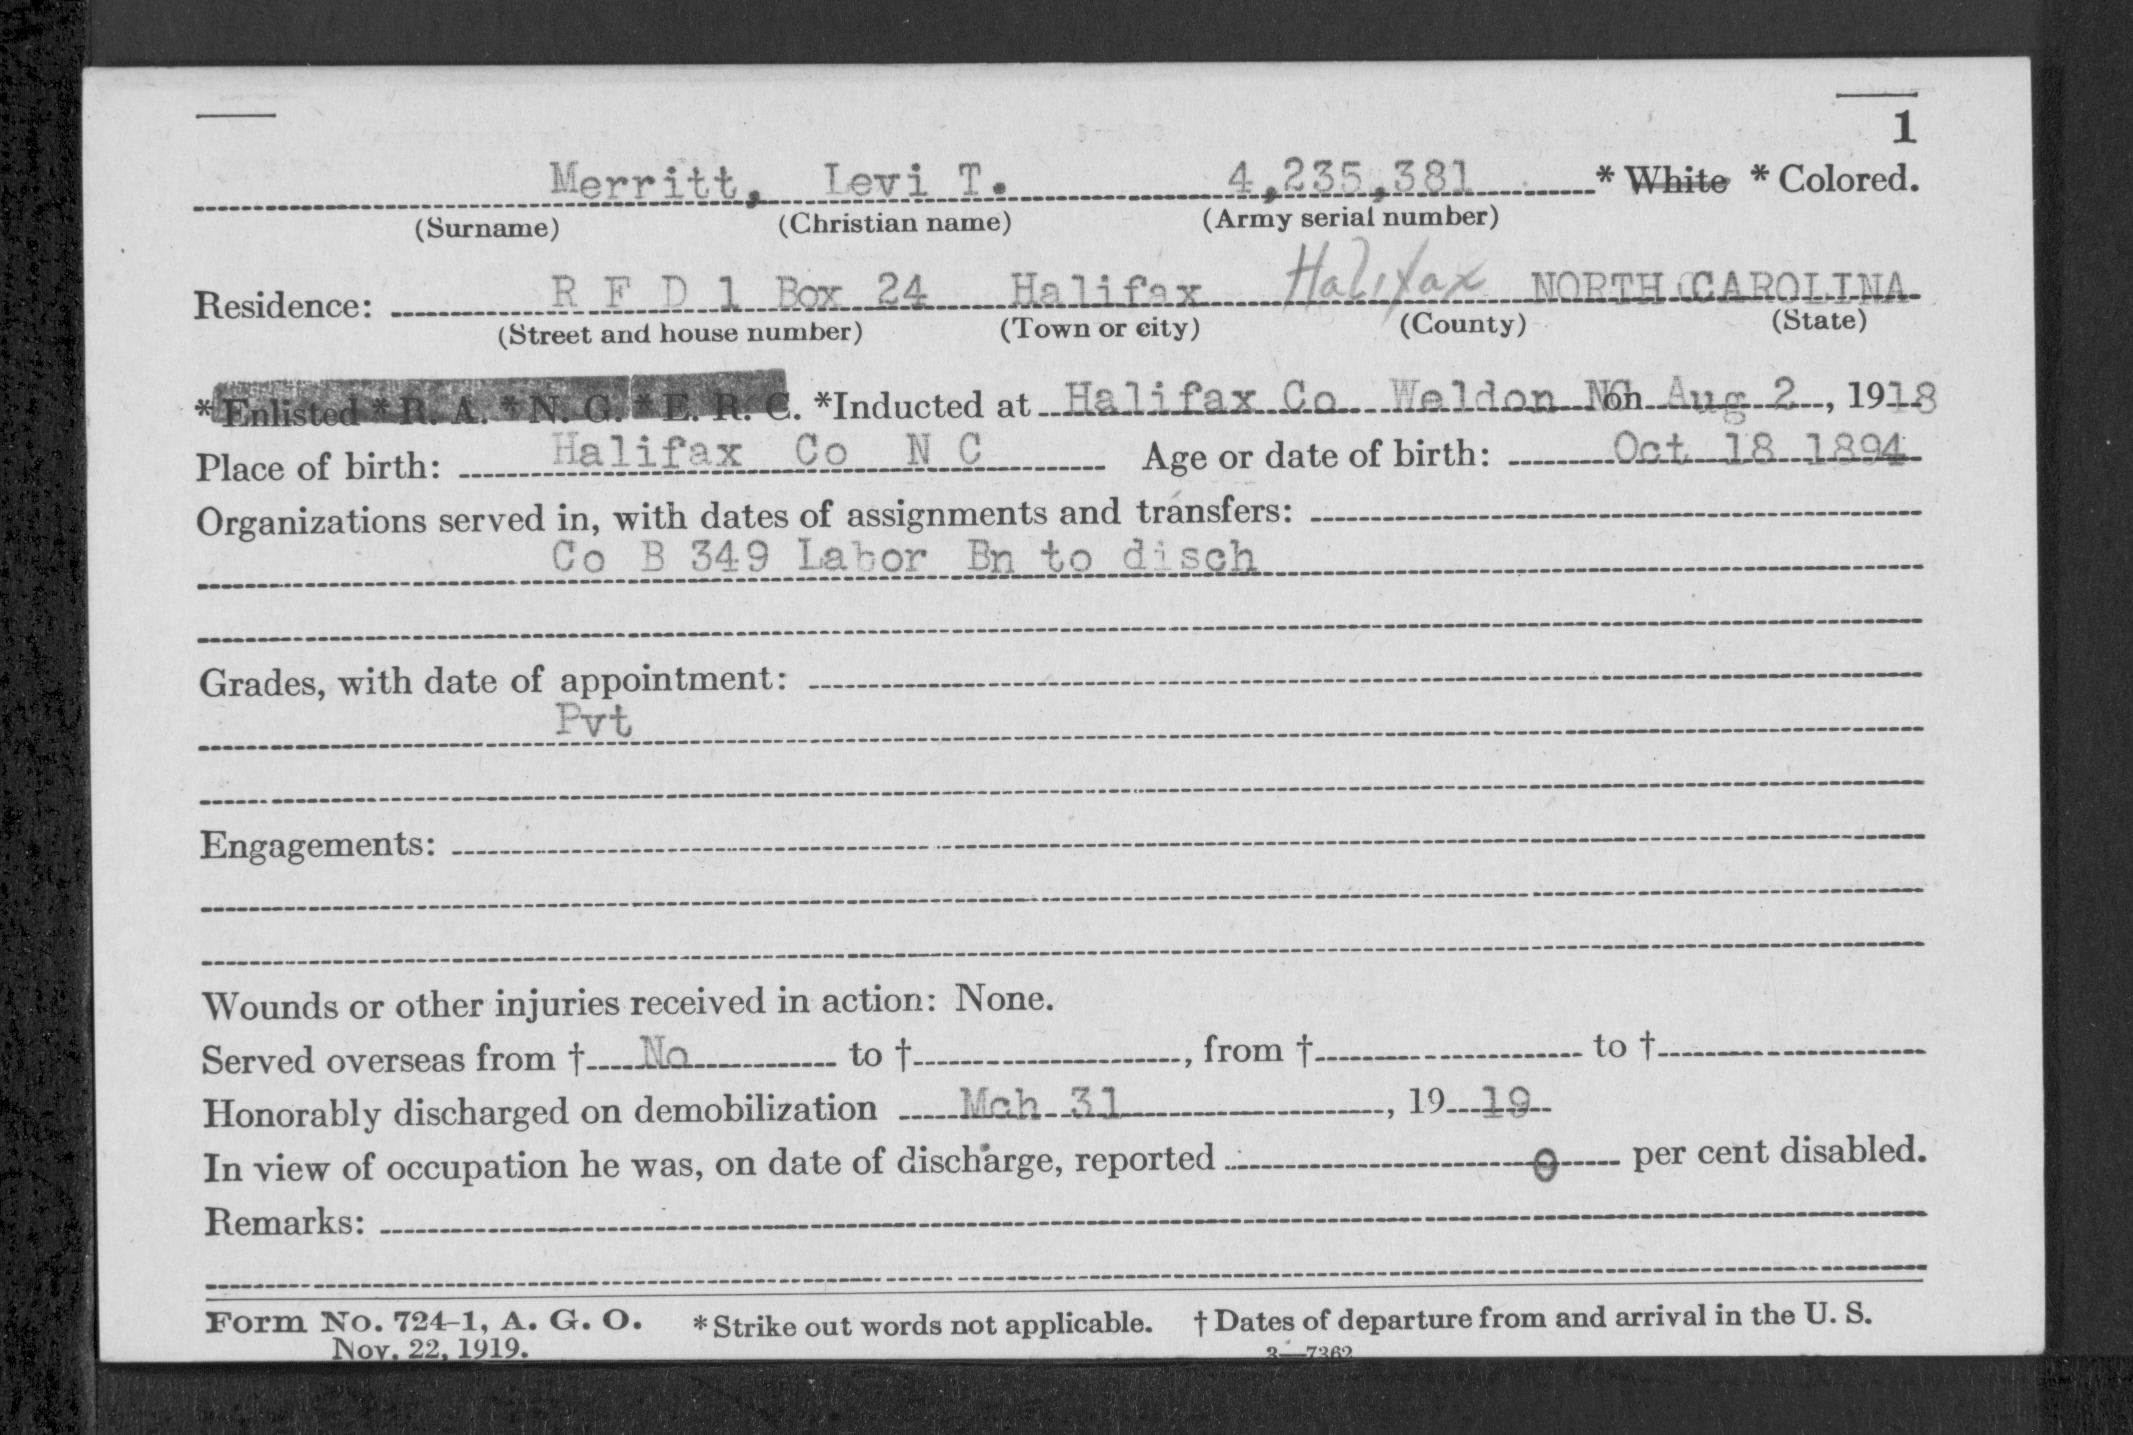 1
Merritt, Levi T. 4,235,381 * White * Colored.
(Surname) (Christian name) (Army serial number)
Residence: R F D 1 Box 24 Halifax Halifax NORTH CAROLINA
(Street and house number) (Town or city) (County) (State)
* Enlisted * R. A. * N. G. * E. R. C. *Inducted at Halifax Co Weldon NC on Aug 2, 1918
Place of birth: Halifax Co N C Age or date of birth: Oct 18 1894
Organizations served in, with dates of assignments and transfers:
Co B 349 Labor Bn to disch
Grades, with date of appointment:
Pvt
Engagements:
Wounds or other injuries received in action: None.
Served overseas from † No to †, from † to †
Honorably discharged on demobilization Mch 31, 19 19
In view of occupation he was, on date of discharge, reported 0 per cent disabled.
Remarks:
Form No. 724-1, A. G. O. * Strike out words not applicable. † Dates of departure from and arrival in the U. S.
Nov. 22, 1919. 3—7362